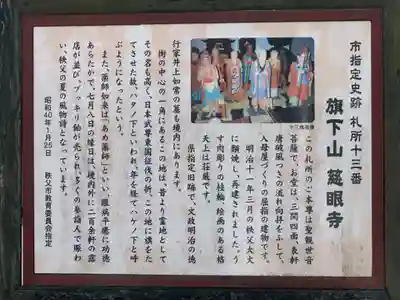 市指定史跡 札所十三番
旗下山 慈眼寺
この札所のご本尊は聖観世音
菩薩で、お堂は、三間四面、表軒
唐破風つきの流れ向拝をふして、
入母屋づくりの屈指の建物です。
明治十一年三月の秩父大火
に類焼し、再建されました。う
す肉彫りの桂輪、絵画のある格
天上は荘厳です。
県指定旧跡で、文政明治の徳
行家井上如常の墓も境内にあります。
街の中心の一角にあるこの地は、昔より霊地として
その名も高く、日本武尊東国征伐の折、この地に旗をた
てさせた故、ハタノ下といわれ、年を経てハケノ下と呼
ぶようになったという。
また、薬師如来は「あめ薬師」といい、眼病平癒に功徳
あらたかで、七月八日の縁日は、境内外に二百余軒の露
店が並び、ブッキリ飴が売られ、多くの参詣人で賑わ
い、秩父の夏の風物詩となっています。
昭和40年1月25日
秩父市教育委員会指定